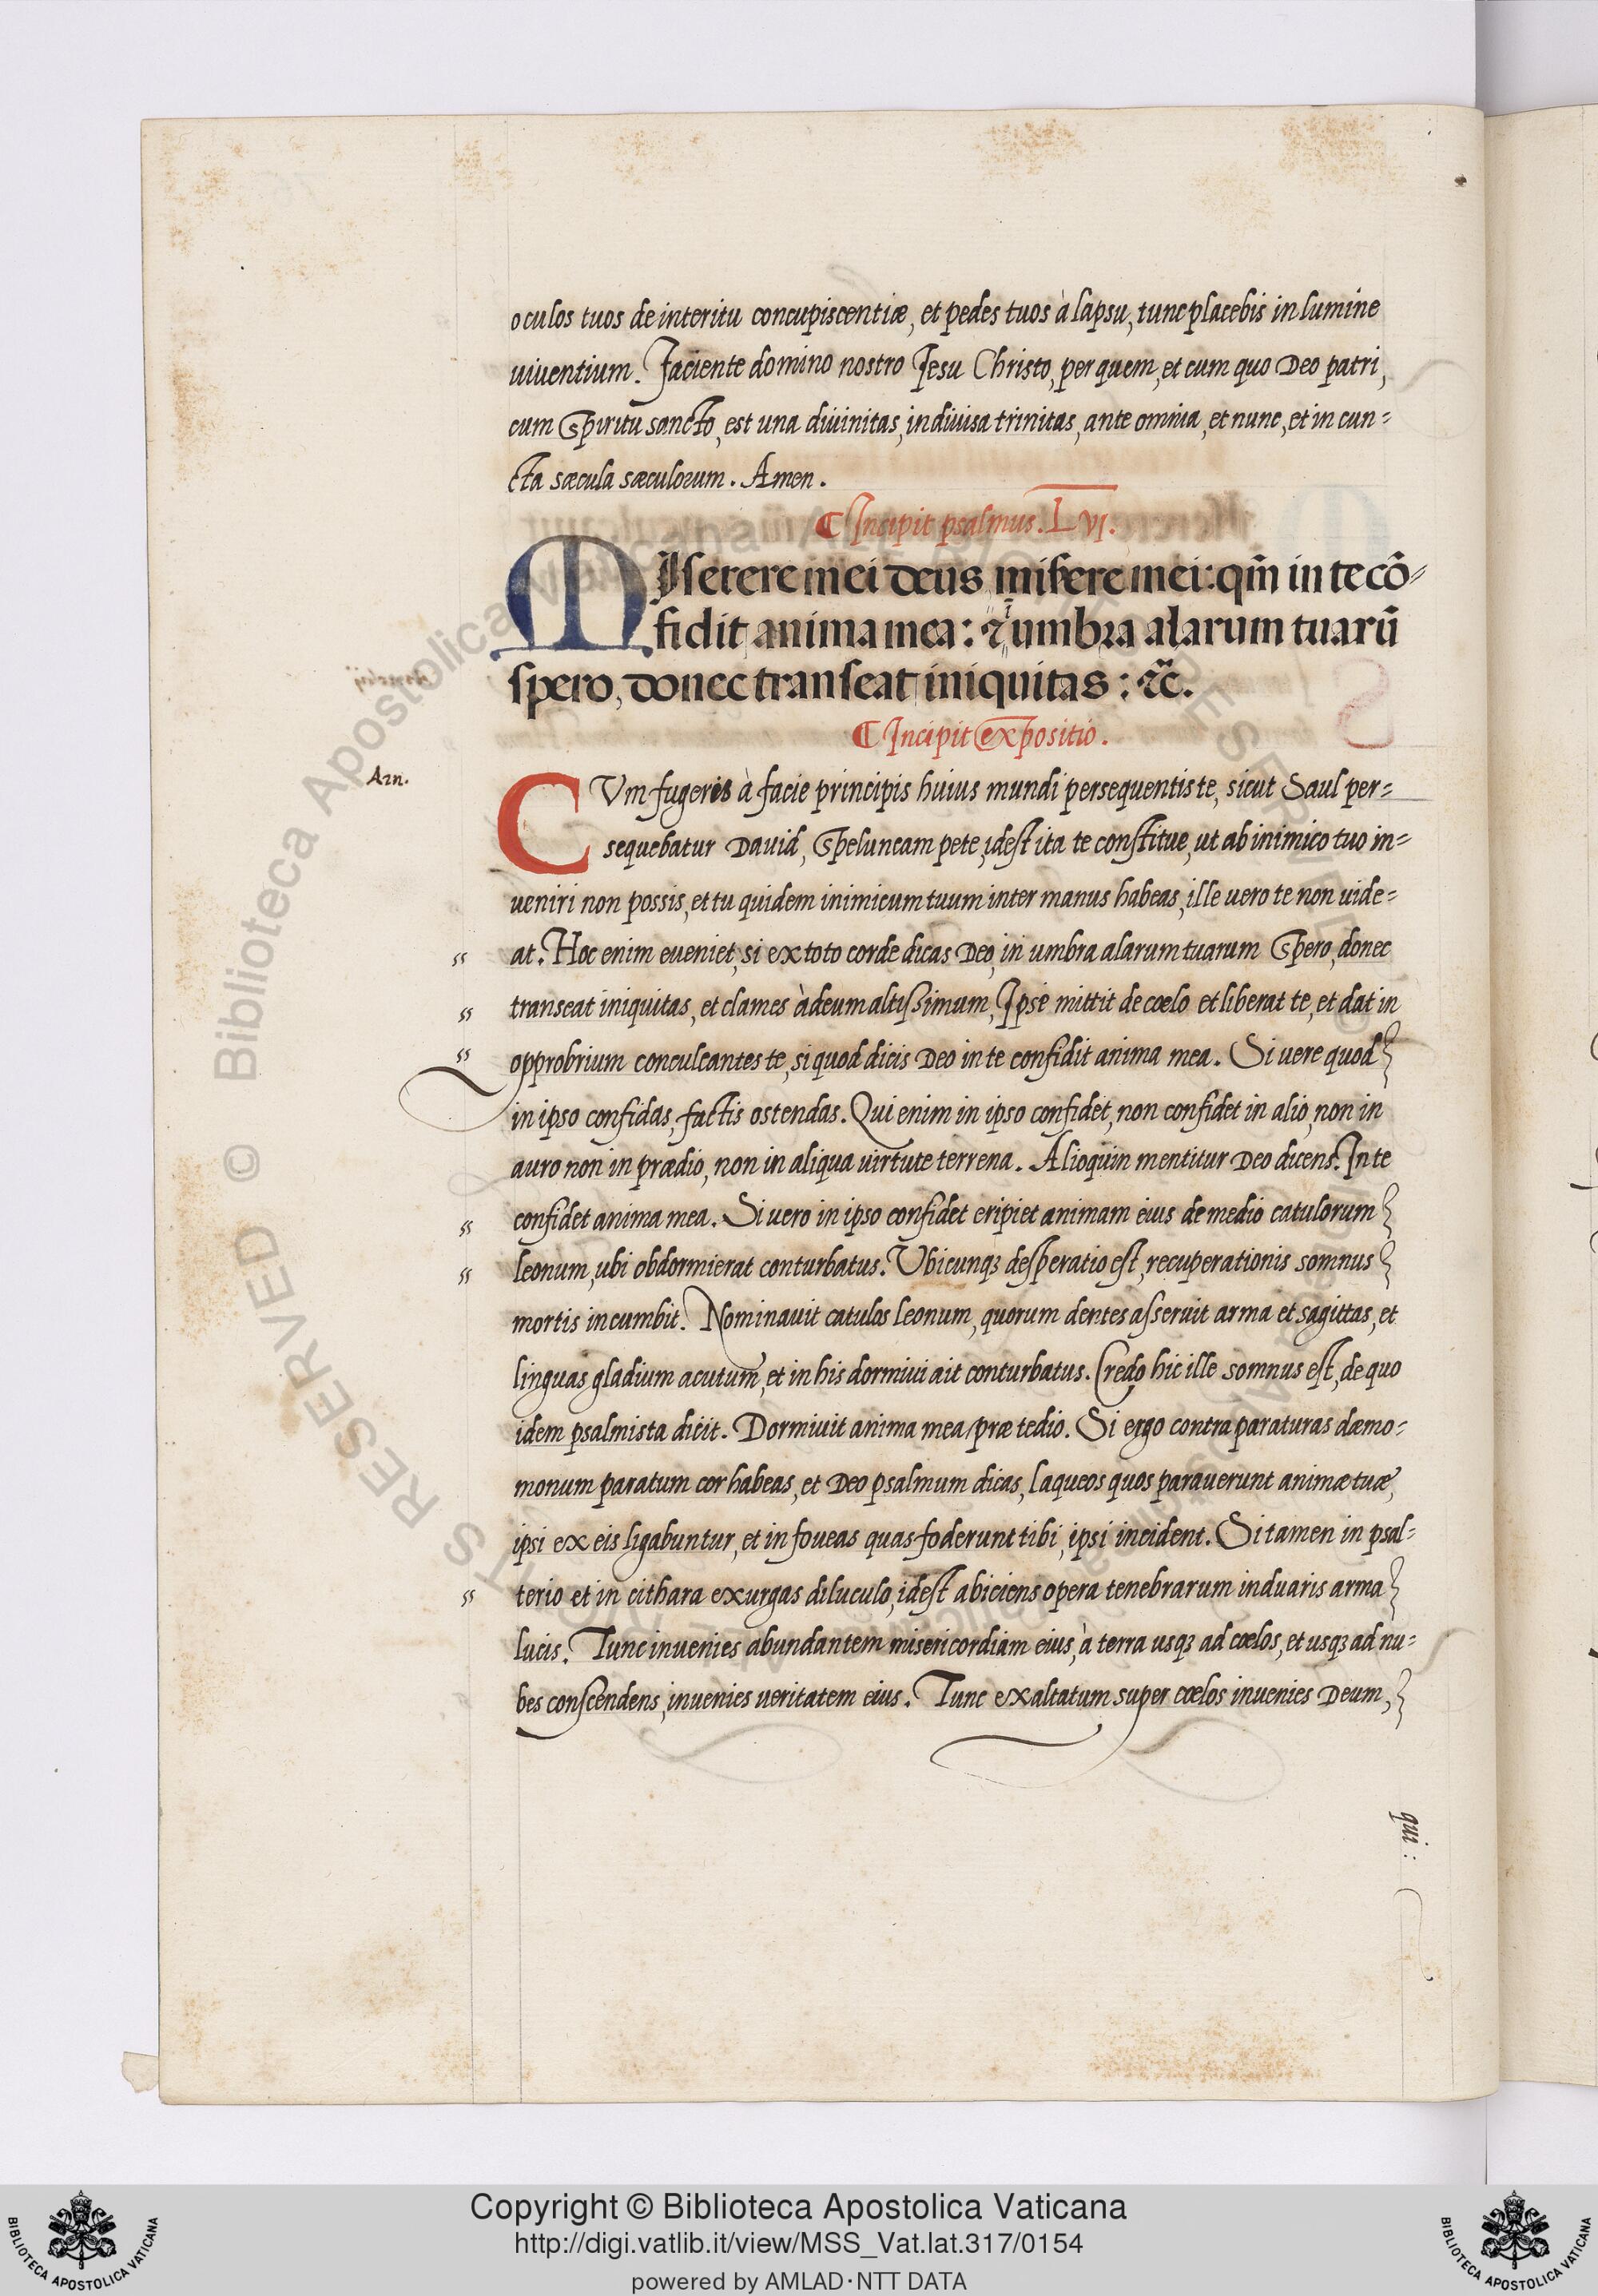 oculos tuos de interitu concupiscentiæ, et pedes tuos à lapsu, tunc placebis in lumine
uiuentium. Faciente domino nostro Jesu Christo, per quem, et cum quo Deo patri,
cum Spiritu sancto, est una diuinitas, indiuisa trinitas, ante omnia, et nunc, et in cun=
cta sæcula sæculorum. Amen.
¶ Incipit psalmus. LVI.
MIserere mei deus misere mei: qm̃ in te cõ=
fidit anima mea: ⁊ ĩ umbra alarum tuarũ
spero, donec transeat iniquitas: ⁊c̃.
¶ Incipit expositio.
Arn.
CVm fugeris à facie principis huius mundi persequentis te, sicut Saul per=
sequebatur David, Speluncam pete, idest ita te constitue, ut ab inimico tuo in=
ueniri non possis, et tu quidem inimicum tuum inter manus habeas, ille uero te non uide=
at. Hoc enim eueniet, si ex toto corde dicas Deo, in umbra alarum tuarum Spero, donec
transeat iniquitas, et clames àdeum altissimum, Ipse mittit de cœlo et liberat te, et dat in
opprobrium conculcantes te, si quod dicis Deo in te confidit anima mea. Si uere quod
in ipso confidas, factis ostendas. Qui enim in ipso confidet, non confidet in alio, non in
auro non in prædio, non in aliqua virtute terrena. Alioquin mentitur Deo dicens. In te
confidet anima mea. Si uero in ipso confidet eripiet animam eius de medio catulorum
leonum, ubi obdormierat conturbatus. Vbicunqꝫ desperatio est, recuperationis somnus
mortis incumbit. Nominauit catulos leonum, quorum dentes asseruit arma et sagittas, et
linguas gladium acutum, et in his dormiui ait conturbatus. Credo hic ille somnus est, de quo
idem psalmista dicit. Dormiuit anima mea præ tedio. Si ergo contra paraturas dæmo=
monum paratum cor habeas, et Deo psalmum dicas, laqueos quos parauerunt animæ tuæ,
ipsi ex eis ligabuntur, et in foueas quas foderunt tibi, ipsi incident. Si tamen in psal=
terio et in cithara exurgas diluculo, idest abiciens opera tenebrarum induaris arma
lucis. Tunc inuenies abundantem misericordiam eius, à terra usqꝫ ad cœlos, et usqꝫ ad nu=
bes conscendens, inuenies ueritatem eius. Tunc exaltatum super cœlos inuenies Deum,
qui:
RESERVED © Biblioteca Apostolica Vaticana
Copyright © Biblioteca Apostolica Vaticana
http://digi.vatlib.it/view/MSS_Vat.lat.317/0154
powered by AMLAD·NTT DATA
BIBLIOTECA APOSTOLICA VATICANA
BIBLIOTECA APOSTOLICA VATICANA